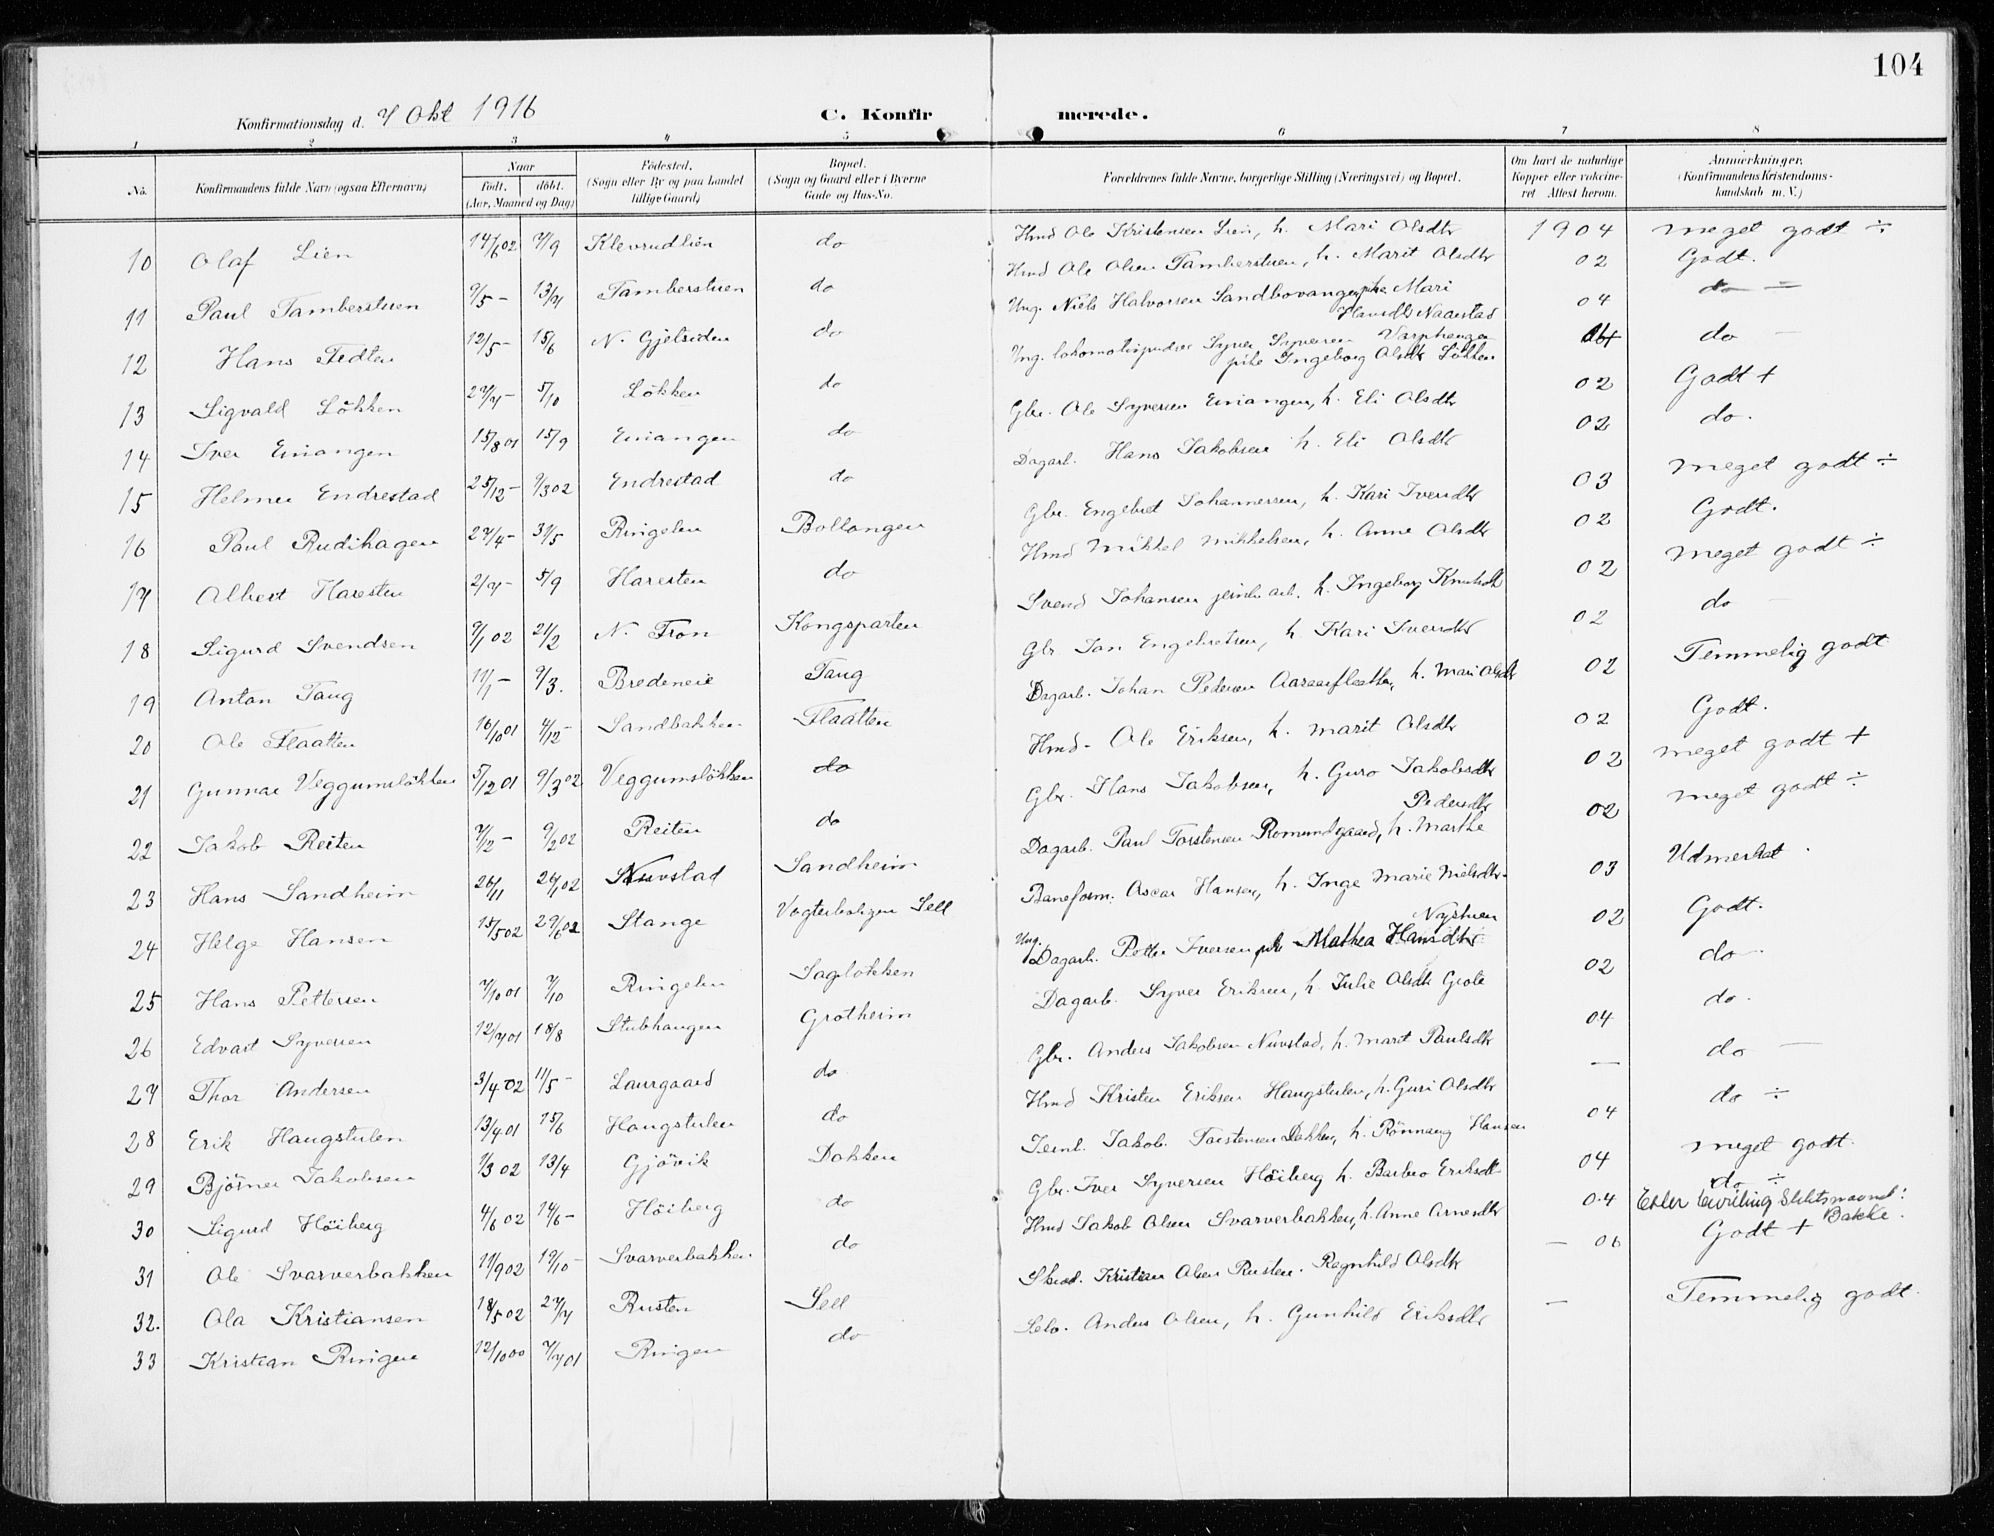 104
Konfirmationsdag d. 7 Okt 1916 C. Konfirmerede.
1 2 3 4 5 6 7 8
No. Konfirmandens fulde Navn (ogsaa Efternavn) Naar født. døbt. (Aar, Maaned og Dag) Fødested. (Sogn eller By og paa Landet tillige Gaard) Bopæl. (Sogn og Gaard eller i Byerne Gade og Hus-No. Forældrenes fulde Navne, borgerlige Stilling (Næringsvei) og Bopæl. Om havt de naturlige Kopper eller vakcineret Attest herom. Anmærkninger. (Konfirmandens Kristendomskundskab m. V.)
10 Olaf Lien 14/6 02 7/9 Klevrudlien do Hmd Ole Kristensen Lien, h. Mari Olsdtr 1904 Meget godt ÷
11 Paul Tamberstuen 9/5 - 13/7 Tamberstuen do Hmd Ole Olsen Tamberstuen, h. Marit Olsdtr 02 Godt.
12 Hans Tedten 12/5 - 15/6 N. Gjetsiden do Ung. Niels Halvorsen Sandbovangen, pike Mari Hansdtr Naarstad 04 do —
13 Sigvald Løkken 27/7 - 5/10 Løkken do Ung. lokomotivpudser Syver Syversen Varphaugen pike Ingeborg Olsdtr Løkken do —
14 Iver Eviangen 15/8 01 15/9 Eviangen do Gbr. Ole Syversen Eviangen, h. Eli Olsdtr 02 Godt +
15 Helmer Endrestad 25/12 - 9/3 02 Endrestad do Dagarb. Hans Jakobsen h. Eli Olsdtr 02 do.
16 Paul Rudihagen 27/4 - 31/5 Ringelen Bollangen Gbr. Engebret Johannessen, h. Kari Iversdtr 03 Meget godt ÷
17 Albert Haresten 2/7 - 5/9 Haresten do Hmd Mikkel Mikkelsen, h. Anne Olsdtr 02 Godt.
18 Sigurd Svendsen 9/1 02 21/2 N. Fron Kongsparten Svend Johansen jernb arb. h. Ingeborg Knutsdtr 02 Meget godt ÷
19 Anton Taug 11/1 - 9/3. Bredeneie Taug Gbr. Jan Engebretsen, h. Kari Iversdtr 02 do —
20 Ole Flaatten 16/10 01 4/12 - Sandbakken Flaatten Dagarb. Johan Pedersen Aaraaflaatten, h. Mari Olsdtr 02 Temmelig godt
21 Gunnar Veggumsløkken 5/12 01 9/3 02 Veggumsløkken do Hmd - Ole Eriksen, h. Marit Olsdtr 02 Godt.
22 Jakob Reiten 7/12 - 9/2 02 Reiten do Gbr. Hans Jakobsen, h. Guro Jakobsdtr 02 Meget godt +
23 Hans Sandheim 26/11 24/1 02 Nuvstad Sandheim Dagarb. Paul Torstensen Romundgaard, h. Marthe Pedersdtr 02 Meget godt ÷
24 Helge Hansen 15/5 02 29/6 02 Stange Vogterboligen Sell Baneform. Oscar Hansen, h. Inge Marie Nielsdtr. 03 Udmerket.
25 Hans Pettersen 7/10 01 7/10 Ringelen Sagløkken Ung. Dagarb. Petter Iversen pike Mathea Hansdtr Nystuen 02 Godt.
26 Edvart Syversen 12/7 01 18/8 Stubhaugen Grotheim Dagarb. Syver Eriksen, h. Julie Olsdtr Grote 02 do —
27 Thor Andersen 3/4 02 11/5 - Laurgaard do Gbr. Anders Jakobsen Nuvstad, h. Marit Paulsdtr 04 do.
28 Erik Haugstulen 13/4 01 15/6 Haugstulen do Hmd Kristen Eriksen Haugstulen, h. Guri Olsdtr — do —
29 Bjørner Jakobsen 1/3 02 13/4 Gjøvik Dokken Jernb. Jakob Torstensen Dokken, h. Rønnaug Hansen 04 do ÷
30 Sigurd Høiberg 4/6 02 14/6 - Høiberg do Gbr. Iver Syversen Høiberg h. Barbro Eriksdt 04 Meget godt.
31 Ole Svarverbakken 11/9 02 19/10 - Svarverbakken do Hmd Jakob Olsen Svarverbakken, h. Anne Arnesdtr 04 do ÷ Efter bevilling Slektsnavnet: Bakke.
32. Ola Kristiansen 18/5 02 27/7 Rusten Sell Skind. Kristian Olsen Rusten. Ragnhild Olsdtr — 06 Godt +
33 Kristian Ringen 12/10 00 7/7 01 Ringen do Selv. Anders Olsen, h. Gunhild Eriksdtr — Temmelig godt.